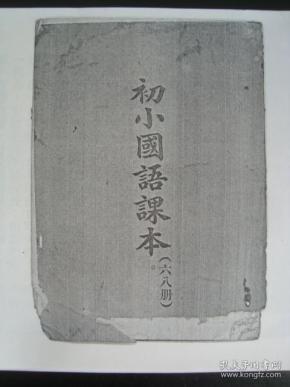 初小國語課本(六八册)
孔夫子旧书网
kongfz.com